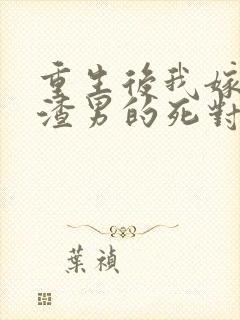 重生後我嫁
渣男的死對
葉禎